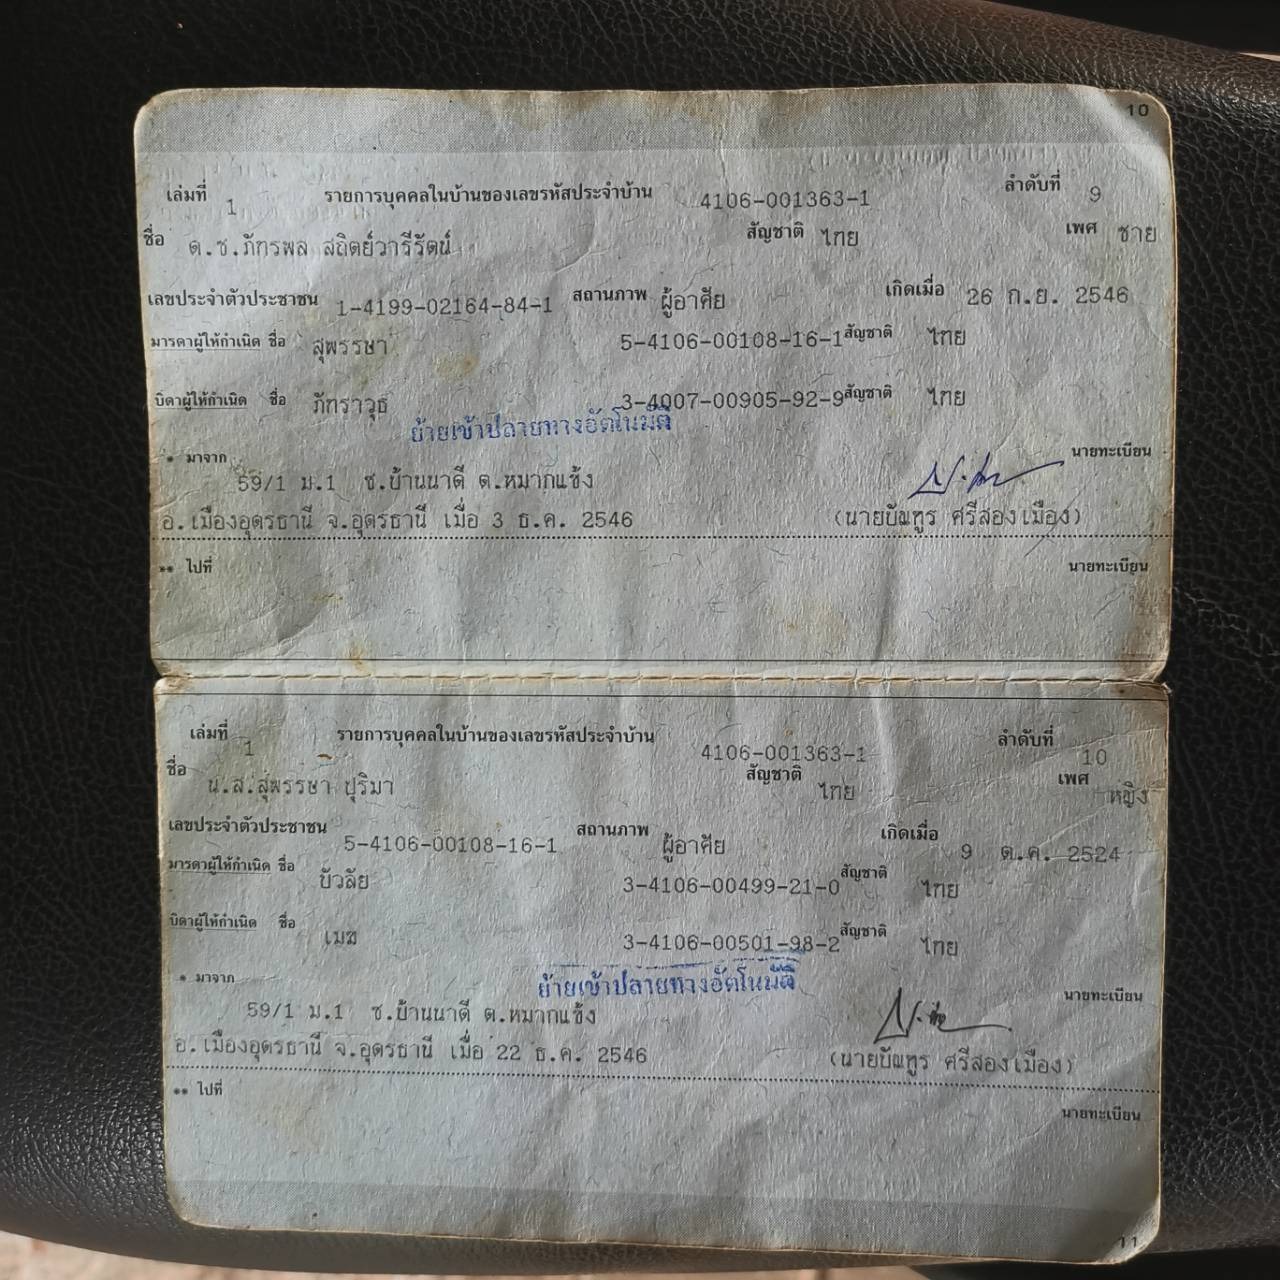 10
เล่มที่ 1 รายการบุคคลในบ้านของเลขรหัสประจำบ้าน 4106-001363-1 ลำดับที่ 9
ชื่อ ด.ช.ภัทรพล สถิตย์วารีรัตน์ สัญชาติ ไทย เพศ ชาย
เลขประจำตัวประชาชน 1-4199-02164-84-1 สถานภาพ ผู้อาศัย เกิดเมื่อ 26 ก.ย. 2546
มารดาผู้ให้กำเนิด ชื่อ สุพรรษา 5-4106-00108-16-1 สัญชาติ ไทย
บิดาผู้ให้กำเนิด ชื่อ ภัทราวุธ 3-4007-00905-92-9 สัญชาติ ไทย
ย้ายเข้าปลายทางอัตโนมัติ
* มาจาก นายทะเบียน
59/1 ม.1 ซ.บ้านนาดี ต.หมากแข้ง
อ.เมืองอุดรธานี จ.อุดรธานี เมื่อ 3 ธ.ค. 2546 (นายบัณฑูร ศรีสองเมือง)
** ไปที่ นายทะเบียน
เล่มที่ 1 รายการบุคคลในบ้านของเลขรหัสประจำบ้าน 4106-001363-1 ลำดับที่ 10
ชื่อ น.ส.สุพรรษา ปุริมา สัญชาติ ไทย เพศ หญิง
เลขประจำตัวประชาชน 5-4106-00108-16-1 สถานภาพ ผู้อาศัย เกิดเมื่อ 9 ต.ค. 2524
มารดาผู้ให้กำเนิด ชื่อ บัวลัย 3-4106-00499-21-0 สัญชาติ ไทย
บิดาผู้ให้กำเนิด ชื่อ เมฆ 3-4106-00501-98-2 สัญชาติ ไทย
ย้ายเข้าปลายทางอัตโนมัติ
* มาจาก นายทะเบียน
59/1 ม.1 ซ.บ้านนาดี ต.หมากแข้ง
อ.เมืองอุดรธานี จ.อุดรธานี เมื่อ 22 ธ.ค. 2546 (นายบัณฑูร ศรีสองเมือง)
** ไปที่ นายทะเบียน
11